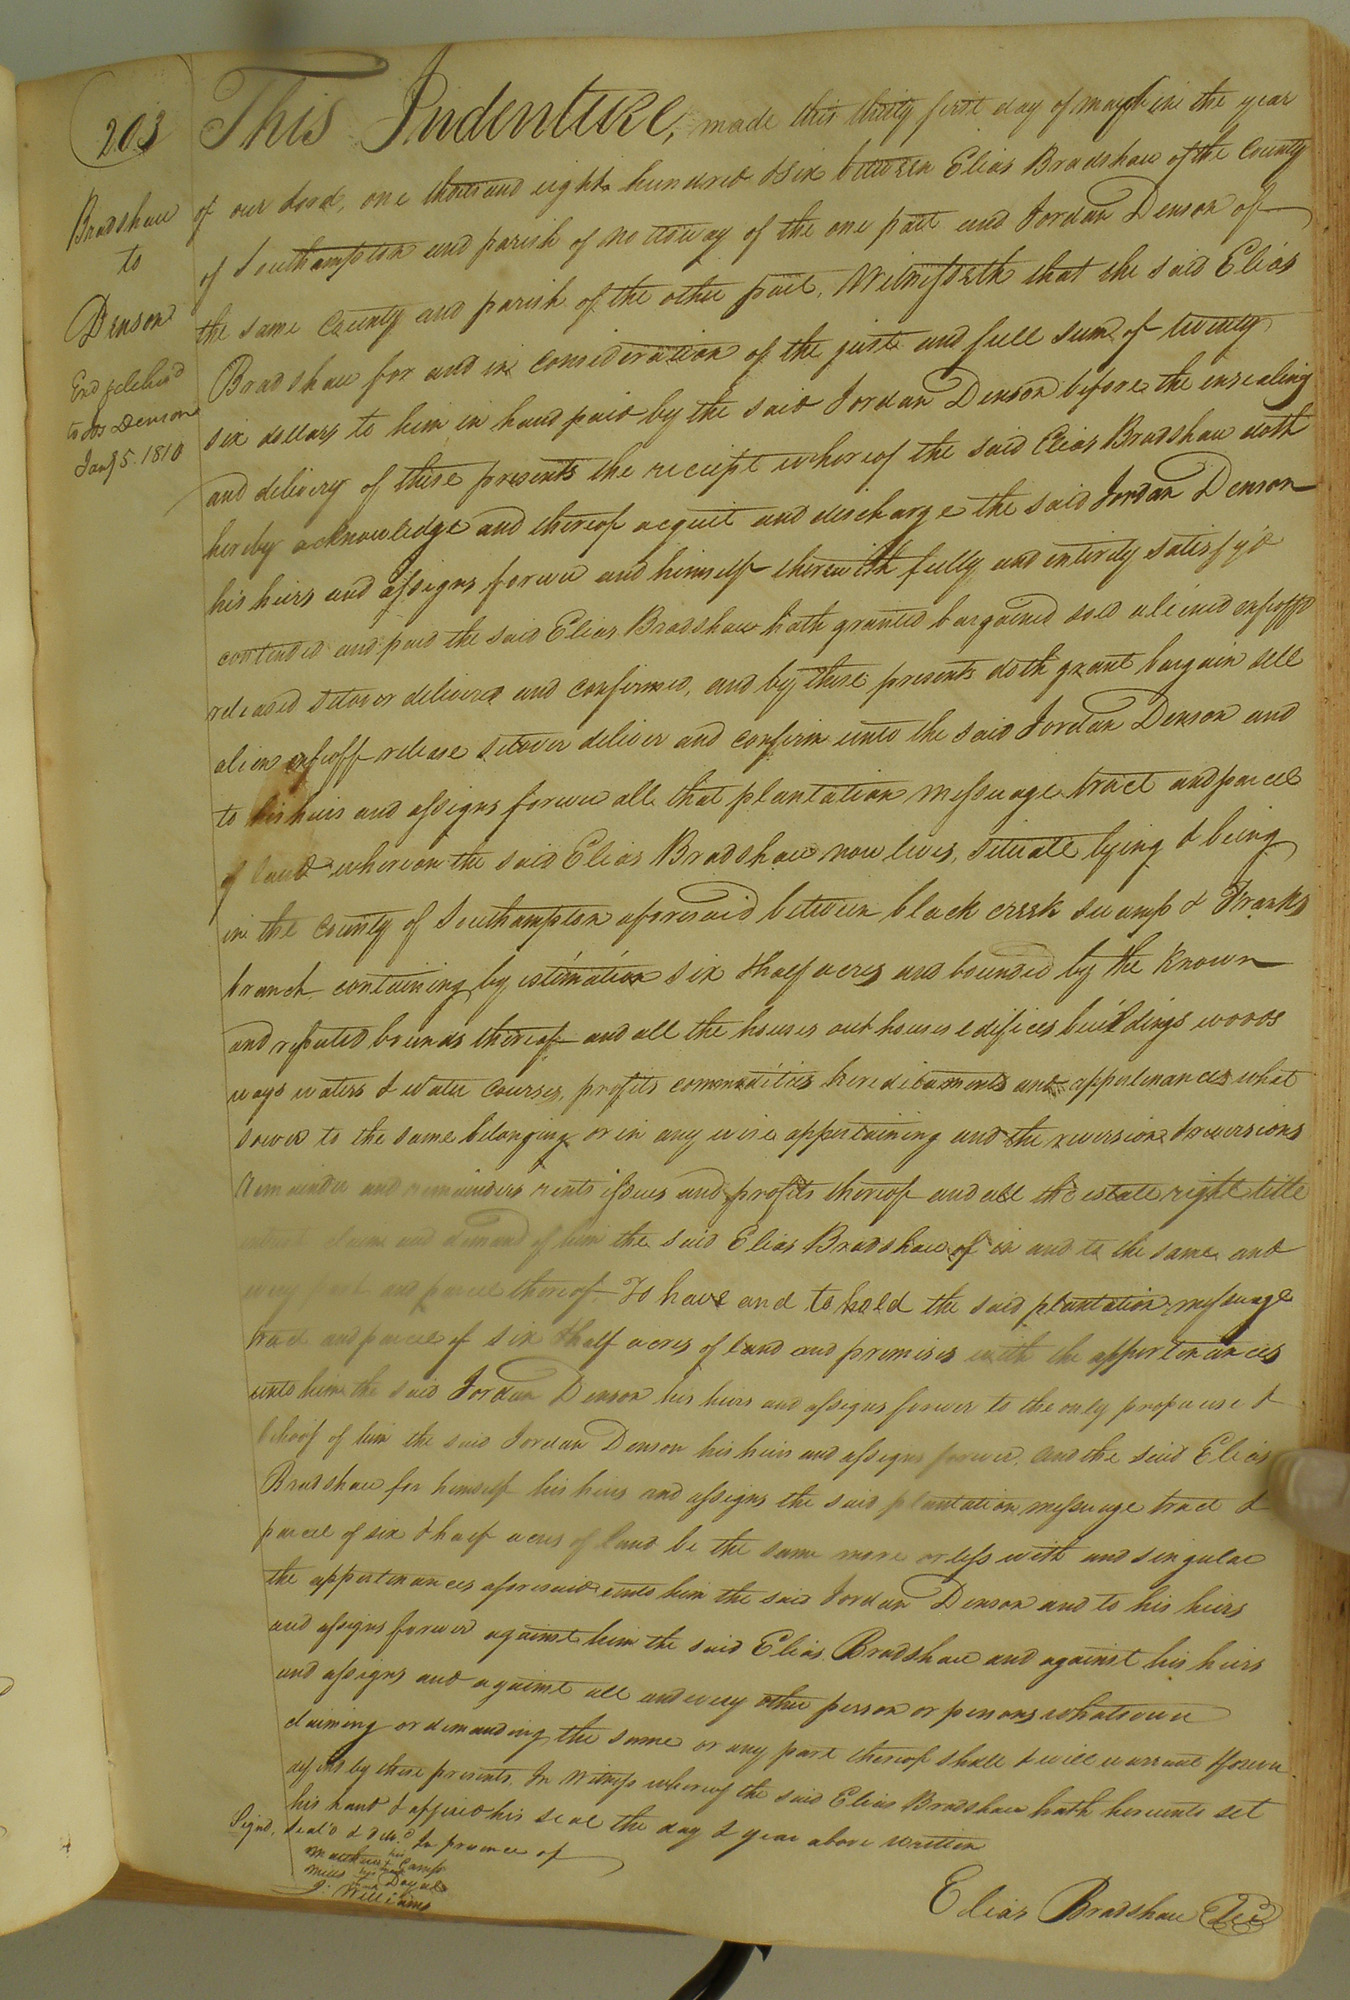 203
Bradshaw
to
Denson
Exd & deliv'd
to Jos Denson
Jany 5. 1810
This Indenture, made this thirty first day of march in the year
of our Lord, one thousand eight hundred & six between Elias Bradshaw of the County
of Southampton and parish of Nottoway of the one part and Jordan Denson of
the same County and parish of the other part, Witnesseth that the said Elias
Bradshaw for and in consideration of the just and full sum of twenty
six dollars to him in hand paid by the said Jordan Denson before the ensealing
and delivery of these presents the receipt whereof the said Elias Bradshaw doth
hereby acknowledge and thereof acquit and discharge the said Jordan Denson
his heirs and assigns forever and himself therewith fully and entirely satisfy'd
contented and paid the said Elias Bradshaw hath granted bargained sold aliened enfeoff'd
released setover delivered and confirmed, and by these presents doth grant bargain sell
alien enfeoff release setover deliver and confirm unto the said Jordan Denson and
to his heirs and assigns forever all that plantation messuage tract and parcel
of land whereon the said Elias Bradshaw now lives, situate lying & being
in the County of Southampton aforesaid between black creek swamp & Franks
branch containing by estimation six & half acres and bounded by the known
and reputed bounds thereof and all the houses out houses edifices buildings woods
ways waters & water courses, profits commodities hereditaments and appertinances what
soever to the same belonging or in any wise appertaining and the reversion & reversions
remainder and remainders rents issues and profits thereof and all the estate right title
interest claim and demand of him the said Elias Bradshaw of in and to the same and
every part and parcel thereof To have and to hold the said plantation, messuage
tract and parcel of six & half acres of land and premises with the appertinances
unto him the said Jordan Denson his heirs and assigns forever to the only proper use &
behoof of him the said Jordan Denson his heirs and assigns forever, and the said Elias
Bradshaw for himself his heirs and assigns the said plantation messuage tract &
parcel of six & half acres of land be the same more or less with and singular
the appertinances aforesaid unto him the said Jordan Denson and to his heirs
and assigns forever against him the said Elias Bradshaw and against his heirs
and assigns and against all and every other person or persons whatsoever
claiming or demanding the same or any part thereof shall & will warrant & forever
defend by these presents. In Witness whereof the said Elias Bradshaw hath hereunto set
his hand & affixed his seal the day & year above written
Signd, seal'd & del'd In presence of
Matthew his Camp
Mills his mark Doyal
J. Williams
Elias Bradshaw